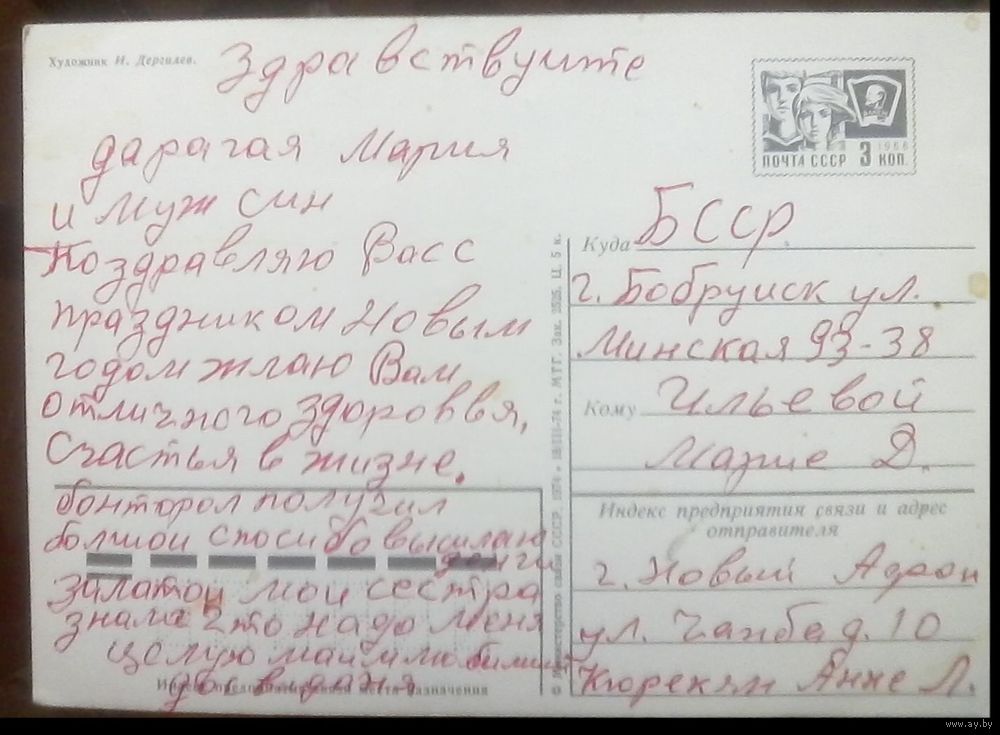 Художник И. Дергилев.
Здравствуйте
дарагая Мария
и муж син
Поздравляю Васс
праздником Новым
годом жлаю Вам
отличного здоровья,
Счастья в жизне.
бонторол получил
болшои спосибо высилаю
денги
залатои мои сестра
знала что надо меня
целую маим любимит
до свидания
Индекс предприятия связи места назначения
ПОЧТА СССР 3 КОП.
1966
ВЛКСМ
Куда БССР
г. Бобруиск ул.
Минская 93-38
Кому Ильевой
Марие Д.
Индекс предприятия связи и адрес
отправителя
г. Новый Афон
ул. Чанба д. 10
Кюрекян Анне Л.
© Министерство связи СССР, 1974 г. МТГ. Зак. 2525. Ц. 5 к.
www.ay.by